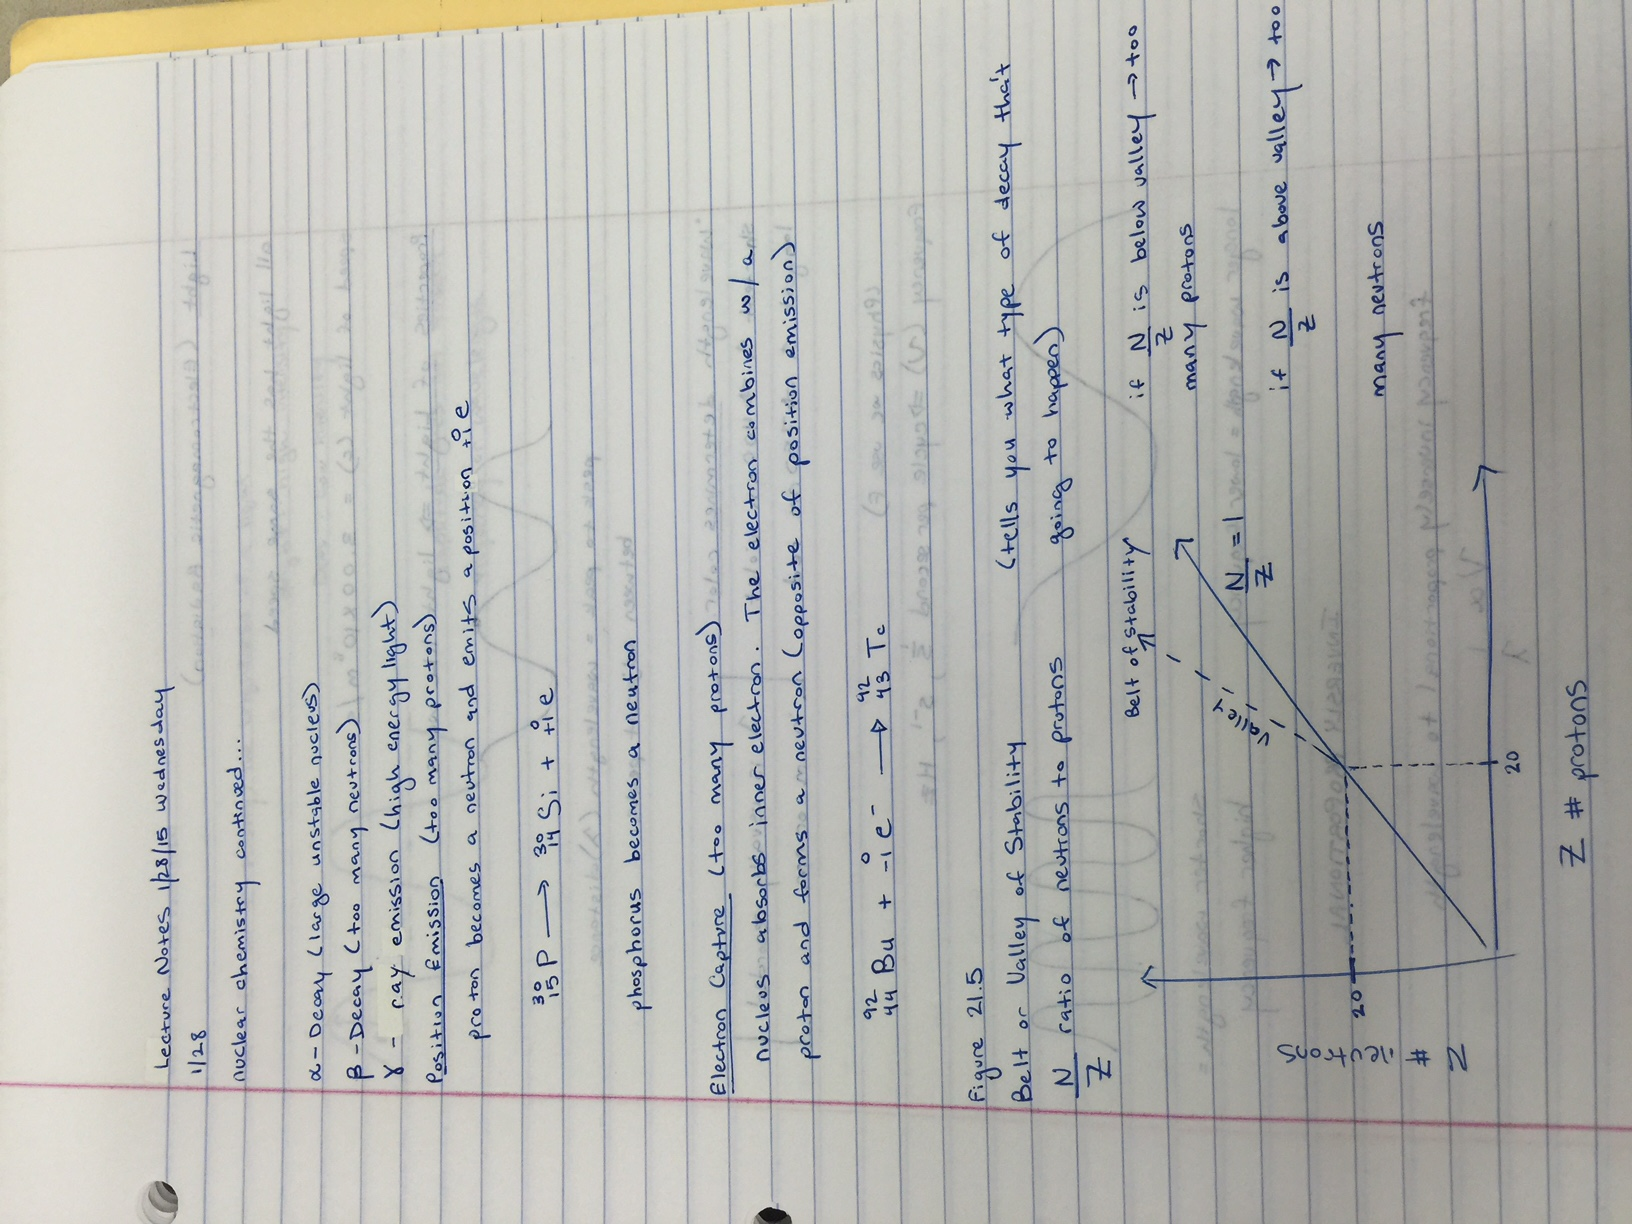 Lecture Notes 1/28/15 Wednesday
1/28
nuclear chemistry continued...
α-Decay (large unstable nucleus)
β-Decay (too many neutrons)
γ - ray emission (high energy light)
Position Emission (too many protons)
proton becomes a neutron and emits a position ⁰₊₁e
³⁰₁₅P ⟶ ³⁰₁₄Si + ⁰₊₁e
phosphorus becomes a neutron
Electron Capture (too many protons)
nucleus absorbs inner electron. The electron combines w/ a
proton and forms a neutron (opposite of position emission)
⁹²₄₄Bu + ⁰₋₁e⁻ ⟶ ⁹²₄₃Tc
Figure 21.5
Belt or Valley of Stability (tells you what type of decay that
N/Z ratio of neutrons to protons going to happen)
Belt of stability
if N/Z is below valley → too
many protons
N/Z = 1
if N/Z is above valley → too
many neutrons
valley
20
N #
20
Z # protons